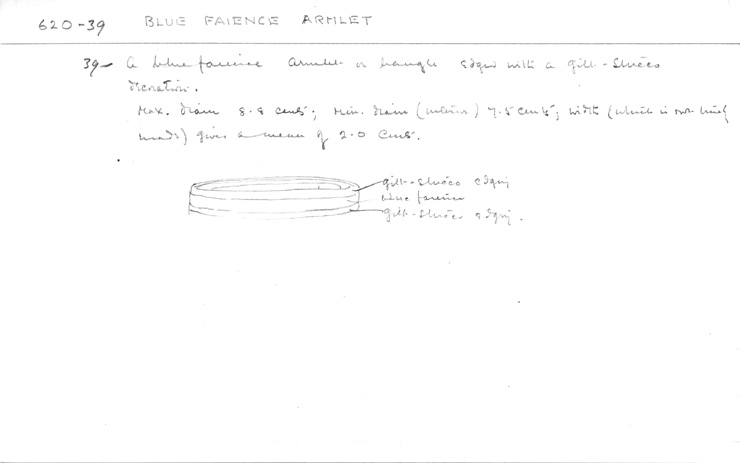 620-39 BLUE FAIENCE ARMLET
39- A blue faience armlet or bangle edged with a gilt-stucco
decoration.
Max. diam 8.8 cents; Min. diam (interior) 7.5 cents; width (which is not
made) gives a mean of 2.0 cents.
gilt-stucco edging
blue faience
gilt-stucco edging.